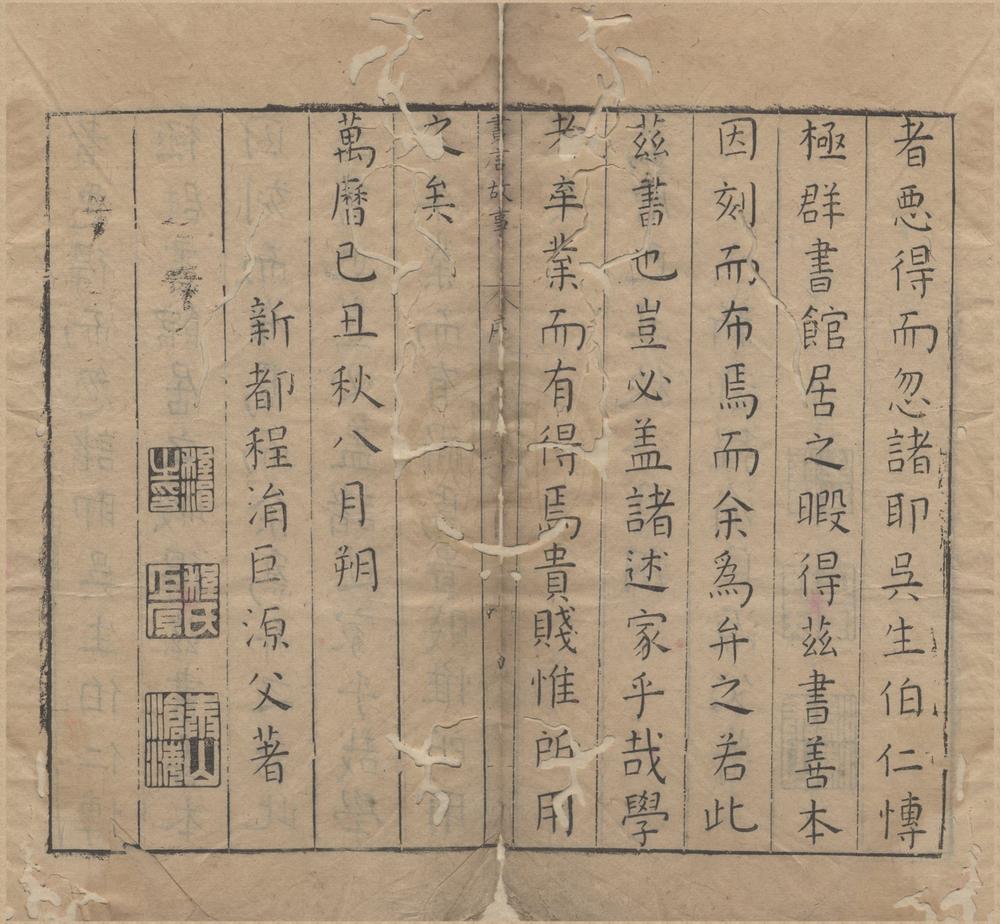 者悪得而忽諸即吳生伯仁愽
極群書館居之暇得茲書善本
因刻而布焉而余為弁之若此
茲書也豈必盖諸述家乎哉學
者卒業而有得焉貴賤惟所用
書言故事 序
之矣
萬曆己丑秋八月朔
新都程涓巨源父著
程涓之印
程氏巨源